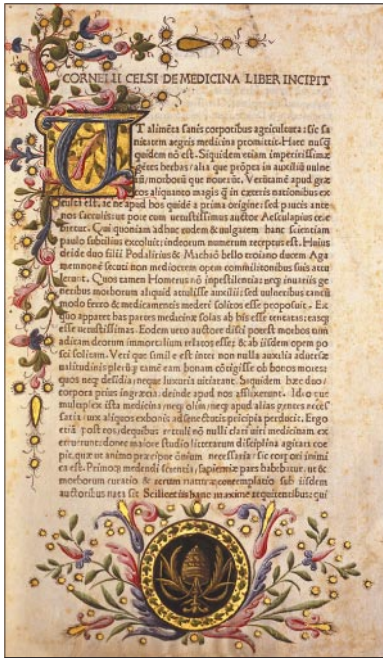 CORNELII CELSI DE MEDICINA LIBER INCIPIT
UT alimēta sanis corporibus agricultura: sic sa
nitatem aegris medicina promittit. Haec nusq̄
quidem nō est. Siquidem etiam imperitissimæ
gētes herbas/alia que prōpta in auxiliū uulne
rū morborū que nouerūt. Verūtamē apud græ
cos aliquanto magis q̄ in cæteris nationibus ex
culta est. ac ne apud hos quidē a prima origine: sed paucis ante
nos sæculis: ut pote cum uetustissimus auctor Aesculapius cele
bretur. Qui quoniam adhuc rudem & uulgatem hanc scientiam
paulo subtilius excoluit: indeorum numerum receptus est. Huius
deide duo filii Podalirius & Machaō bello troiano ducem Aga
memnonē secuti non mediocrem opem commilitonibus suis attu
lerunt. Quos tamen Homerus nō inpestilentia: neq; inuariis ge
neribus morborum aliquid attulisse auxilii: sed uulneribus tantū
modo ferro & medicamentis mederi solitos esse proposuit. Ex
quo apparet has partes medicinæ solas ab his esse tentatas: easq;
esse uetustissimas. Eodem uero auctore disci potest morbos tum
ad iram deorum immortalium relatos esse: & ab iisdem opem po
sci solitam. Veri que simile est inter non nulla auxilia aduersæ
ualitudinis plerūq; tamē eam bonam cōtigisse ob bonos mores:
quos neq; desidia: neque luxuria uitiarant. Siquidem hæc duo/
corpora prius ingræcia: deinde apud nos afflixerunt. Ideo que
multiplex ista medicina/ neq; olim/ neq; apud alias gentes neces
saria/ uix aliquos exbonis ad senectutis pricipia perducit. Ergo
etiā post eos/ dequibus retuli nō nulli clari uiri medicinam ex
ercuerunt: donec maiore studio litterarum disciplina agitari coe
pit. quæ ut animo præcipue ōnium necessaria/ sic corpori inimi
ca est. Primoq; medendi scientia/ sapientiæ pars habebatur. ut &
morborum curatio & rerum naturæ contemplatio sub iisdem
auctoribus nata sit Scilicet iis hanc maxime requirentibus: qui